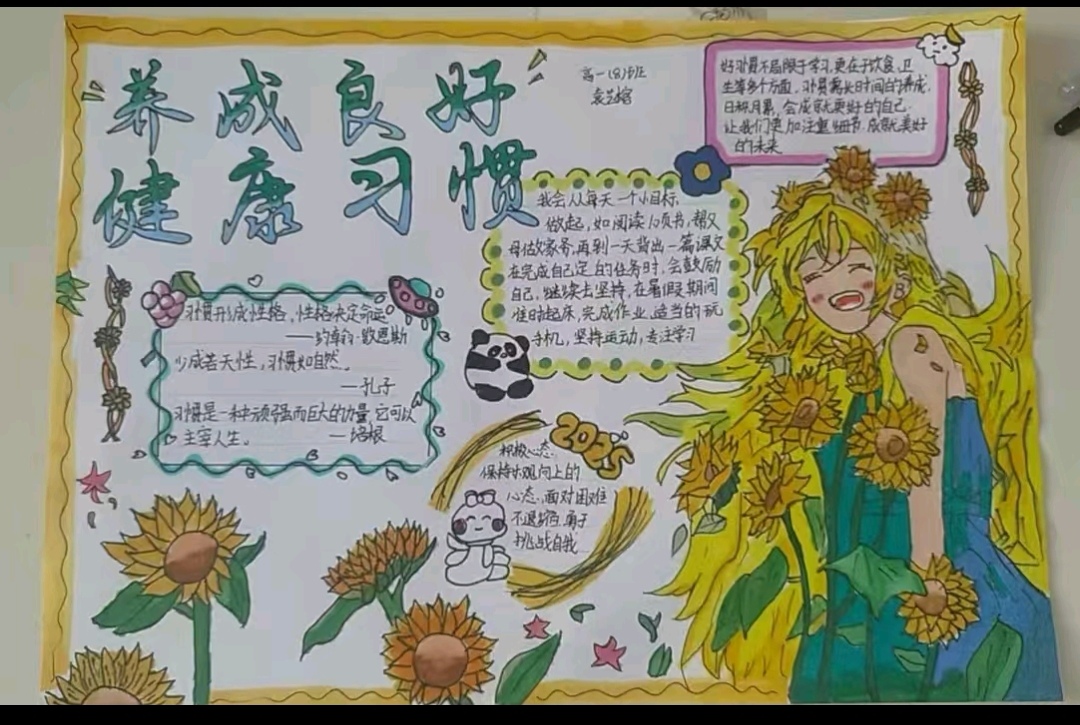 养成良好
健康习惯
高一(8)班
好习惯不局限于学习,更在于饮食、卫
生等多个方面,习惯需长时间的养成,
日积月累,会成就更好的自己.
让我们更加注重细节,成就美好
的未来
我会从每天一个小目标
做起,如阅读10页书,帮父
母做家务,再到一天背出一篇课文
在完成自己定的任务时,会鼓励
自己,继续去坚持,在暑假期间
准时起床,完成作业,适当的玩
手机,坚持运动,专注学习
习惯形成性格,性格决定命运
——约翰·凯恩斯
少成若天性,习惯如自然。
—孔子
习惯是一种顽强而巨大的力量,它可以
主宰人生。 —培根
2025
积极心态:
保持乐观向上的
心态,面对困难
不退缩,勇于
挑战自我